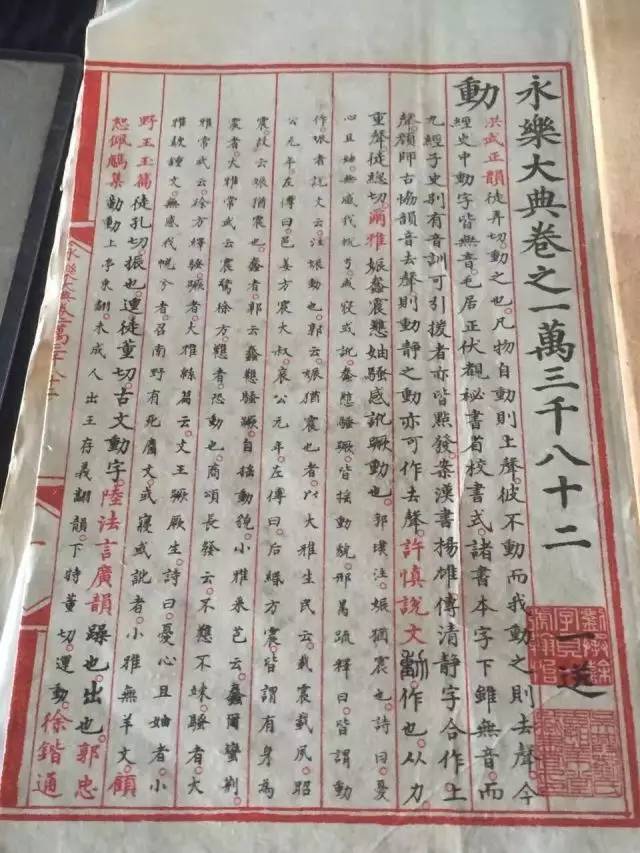 永樂大典卷之一萬三千八十二
一送
動
洪武正韻徒弄切。動之也。凡物自動則上聲。彼不動而我動之則去聲。今
經史中動字皆無音。毛居正伏覩秘書省校書式。諸書本字下雖無音。而
九經子史別有音訓可引援者亦皆點發。案漢書揚雄傳清靜字合作上
聲。顏師古協韻音去聲則動靜之動亦可作去聲。許慎說文動作也。从力
重聲徒緫切。爾雅娠蠢震戁妯騷感訛蹶動也。郭璞注。娠猶震也。詩曰。憂
心且妯。無感我帨兮。或寢或訛。蠢戁騷蹶。皆搖動貌。邢昺疏釋曰。皆謂動
作。娠者說文云。注娠動也。郭云。娠猶震也者。以大雅生民云。載震載夙。昭
公元年。左傳曰。邑姜方震大叔。哀公元年。左傳曰。后緡方震。皆謂有身為
震。故云娠猶震也。蠢者。郭云。蠢戁騷蹶。自搖動貌。小雅采芑云。蠢爾蠻荆。
震者。大雅常武云。震驚徐方。戁者。恐動也。商頌長發云。不戁不竦。騷者。大
雅常武云。徐方繹騷。蹶者。大雅緜篇云。文王蹶厥生。詩曰。憂心且妯者。小
雅鼓鍾文。無感我帨兮者。召南野有死麕文。或寢或訛者。小雅無羊文。顧
野王玉篇徒孔切。振也。運徒董切。古文動字。陸法言廣韻躁也。出也。郭忠
恕佩觿集動動上亭東翻。未成人出王存義翻韻。下特董切。運動。徐鍇通
永樂大典卷一萬三千八十二